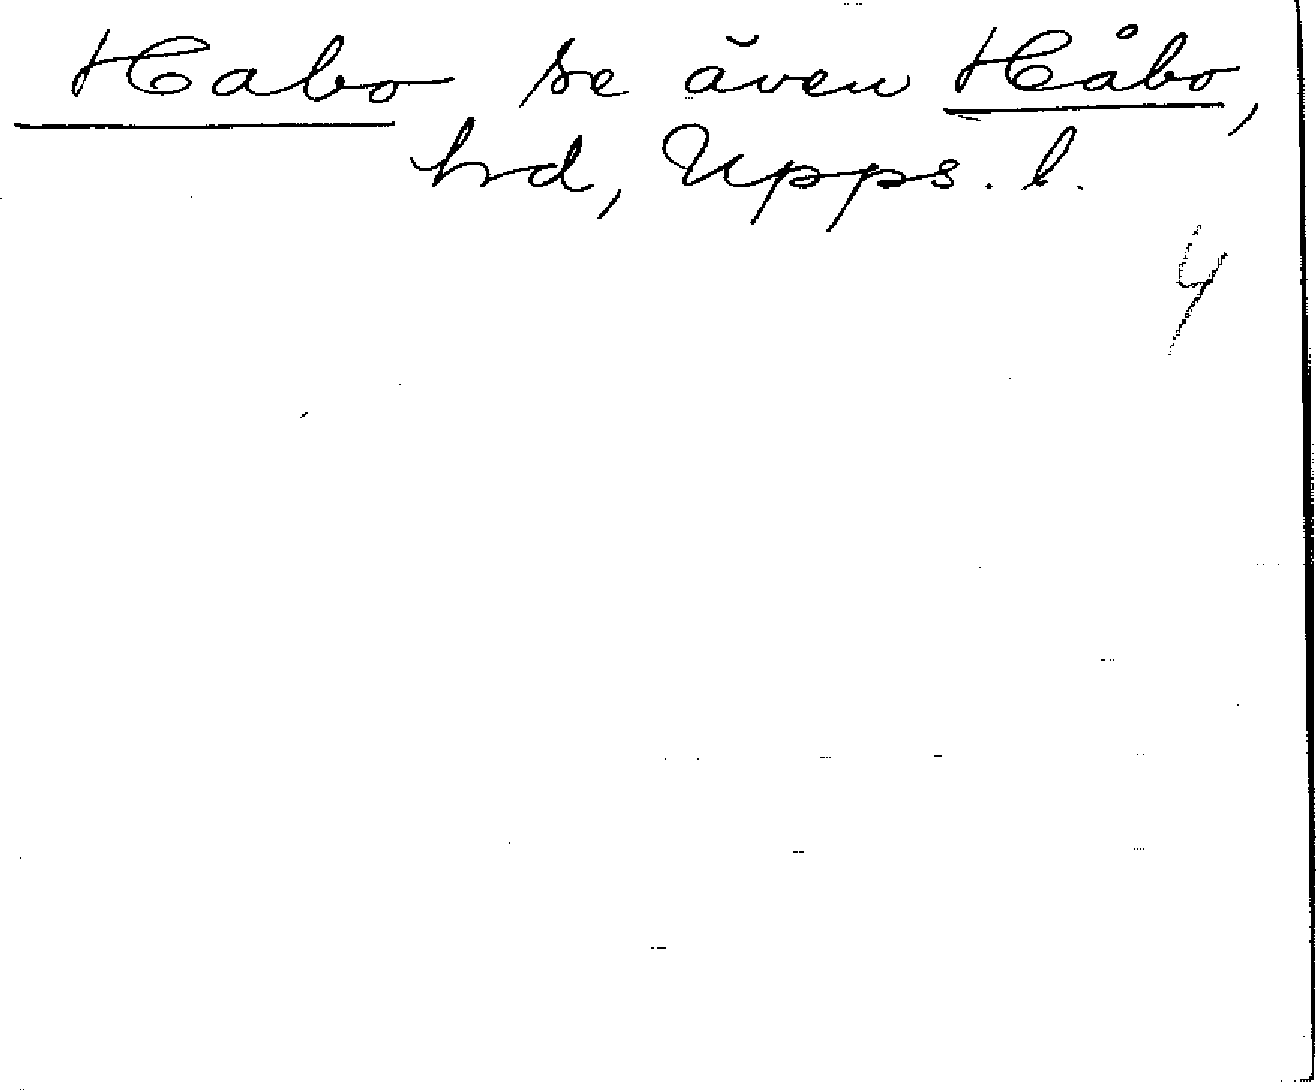 Habo se även Håbo,
hd, Upps. l.
4